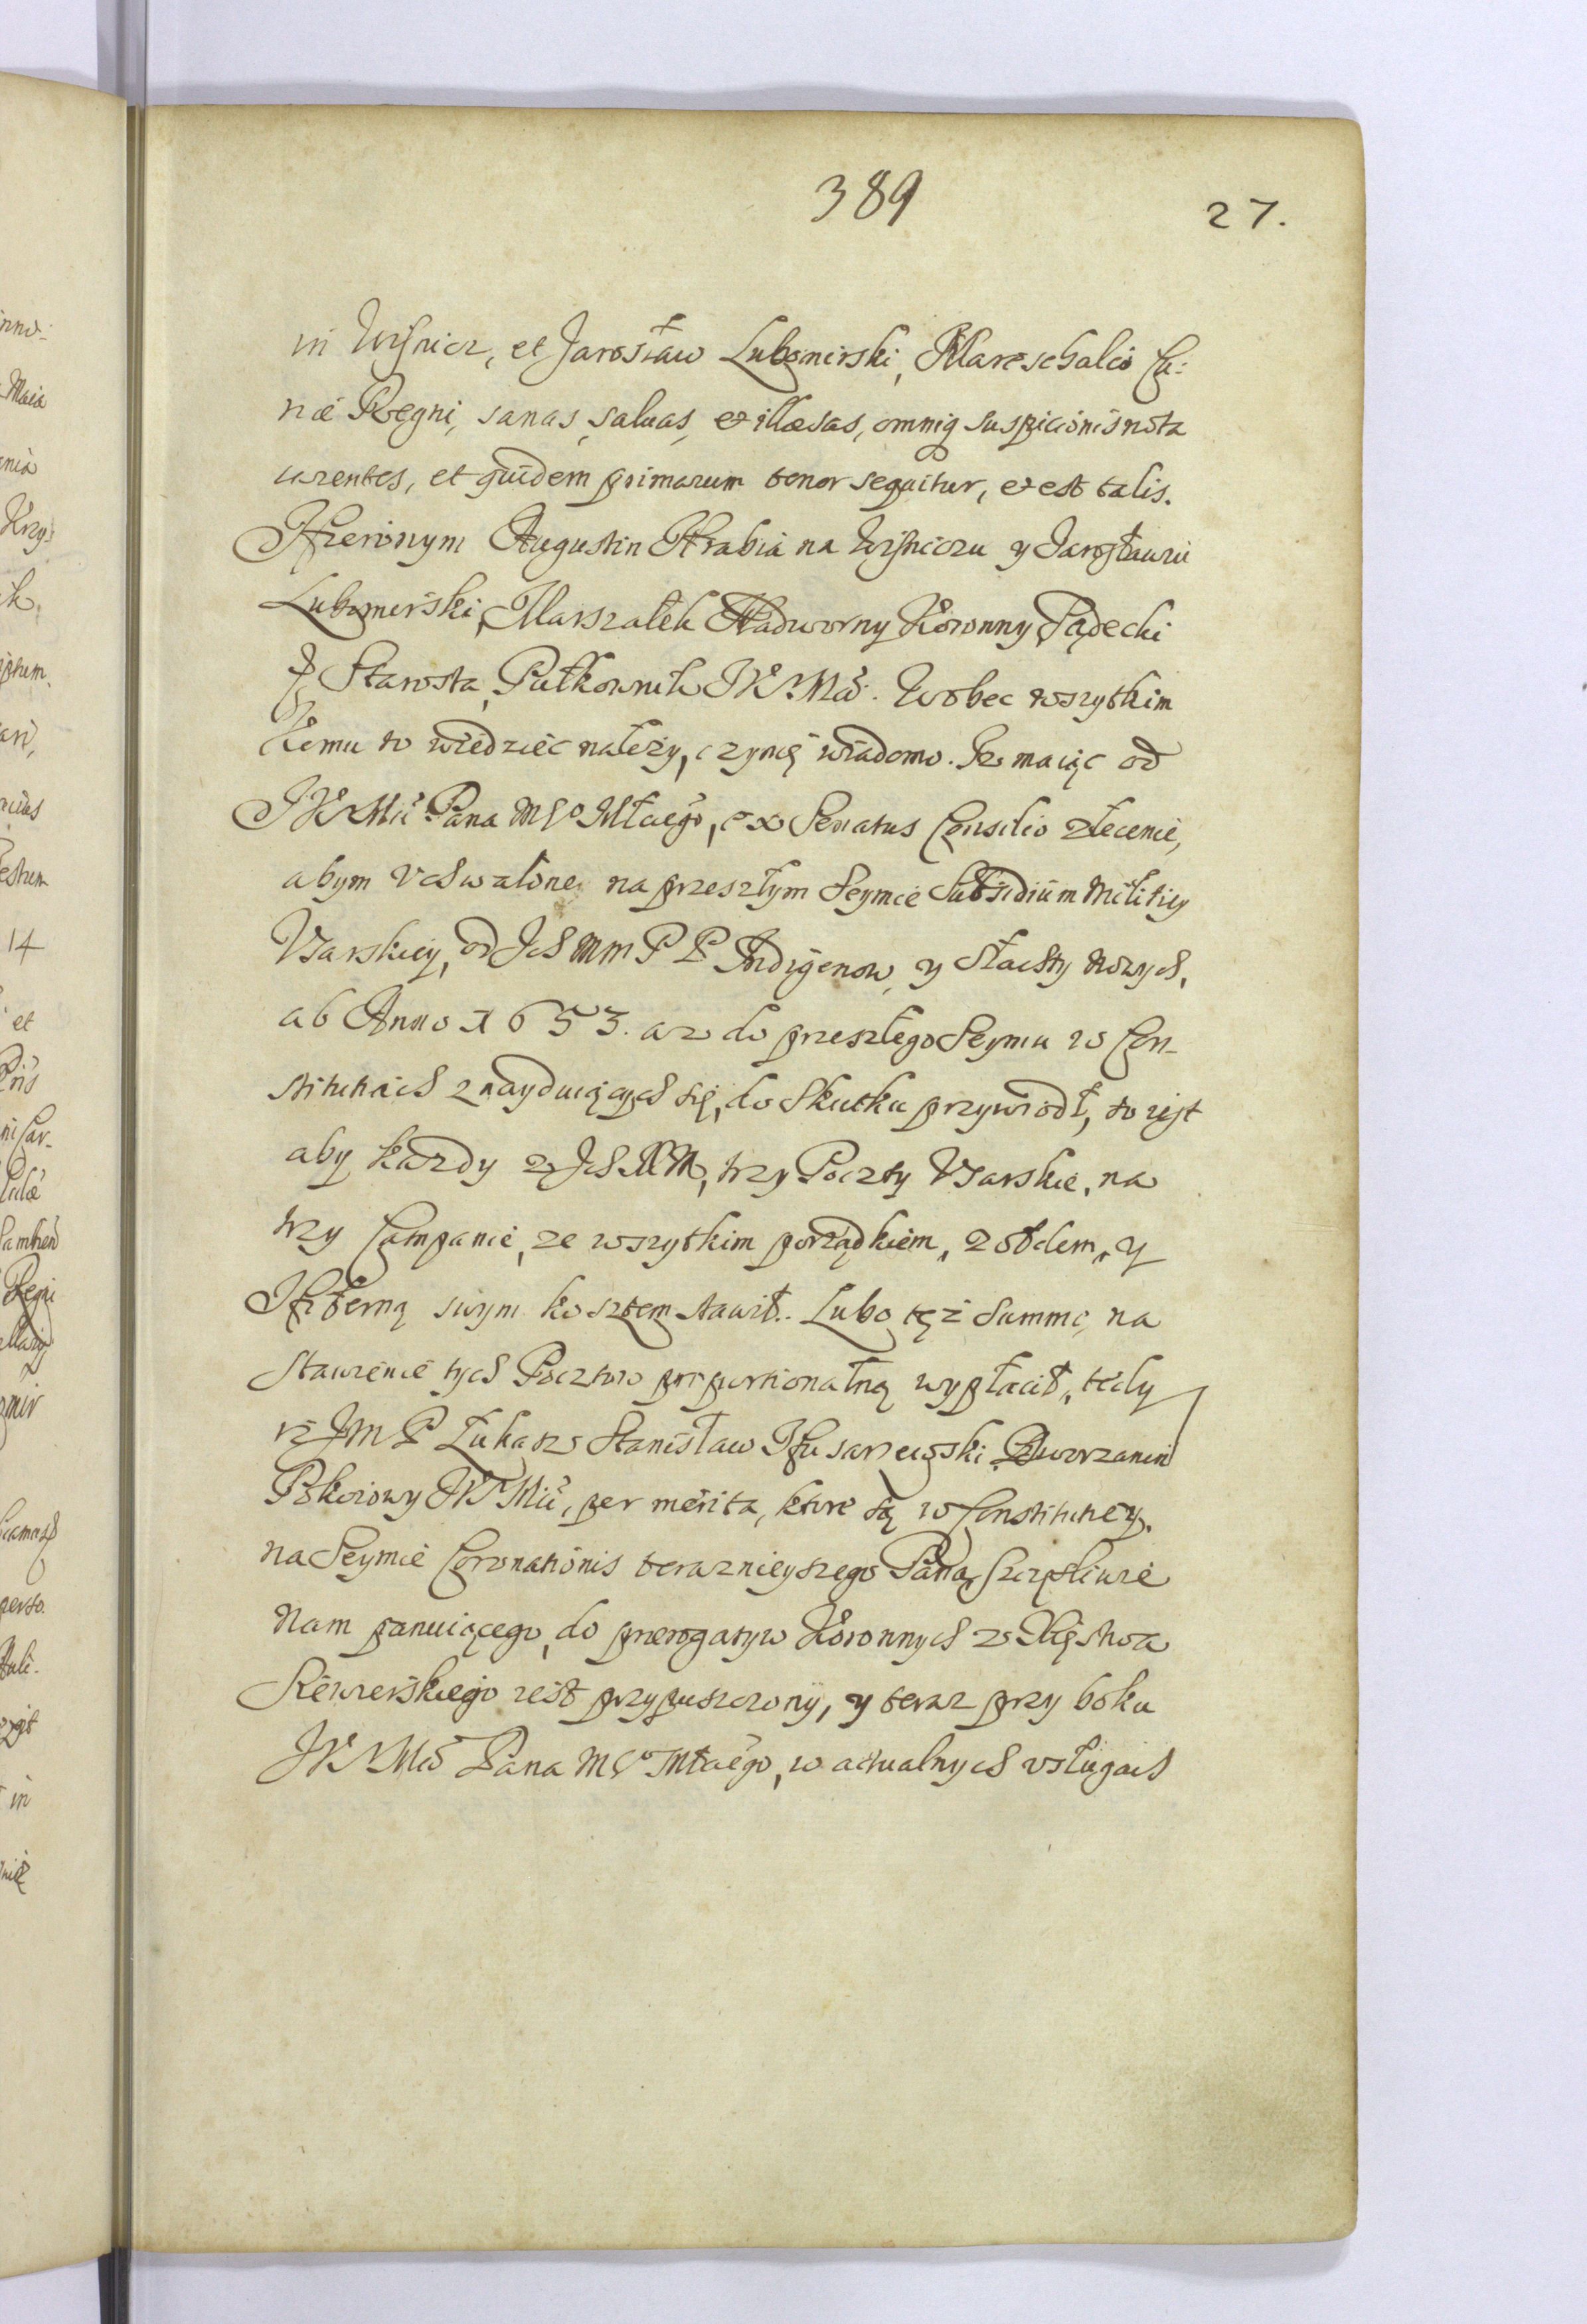 389
27.
in Wisnicz, et Jarosław Lubomirski, Mareschalco Cu:
riæ Regni, sanas, saluas, et illæsas, omniq suspicionis nota
carentes, et quidem primarum tenor sequitur, et est talis.
Hieronym Augustin Hrabia na Wisniczu y Jarosławiu
Lubomirski, Marszałek Nadworny Koronny Sądecki
Starosta, Pułkownik JKrMći. Wobec wszytkim
Komu to wiedziec należy, czynię wiadomo. Iz maiąc od
JKrMći Pana MCo Młćiego, ex Senatus Consilio zlecenie,
abym vchwalone na przeszłym Seymie Subsidium Militiey
Vsarskiey, od Ich Mm P P Indigenow, y Szlachty nowych,
ab Anno 1653. az do przeszłego Seymu w Con-
stitutiach znayduiących się, do skutku przywiodł, to iest
aby kazdy z Ich MM, trzy Poczty Vsarskie, na
trzy Campanie, ze wszytkim porządkiem, zołdem, y
Hiberną swym kosztem stawił. Lubo też summę, na
stawienie tych Pocztow proportionalną wypłacił, tedy
iż JM P Łukasz Stanisław Husarzewski Dworzanin
Pokoiowy JKrMći, per merita, ktore są w Constitutiey,
na Seymie Coronationis teraznieyszego Pana, szczęśliwie
nam panuiącego, do prerogatyw Koronnych z Xięstwa
Siewierskiego iest przypuszczony, y teraz przy boku
JKrMći Pana MCo Młćiego, w actualnych vsługach